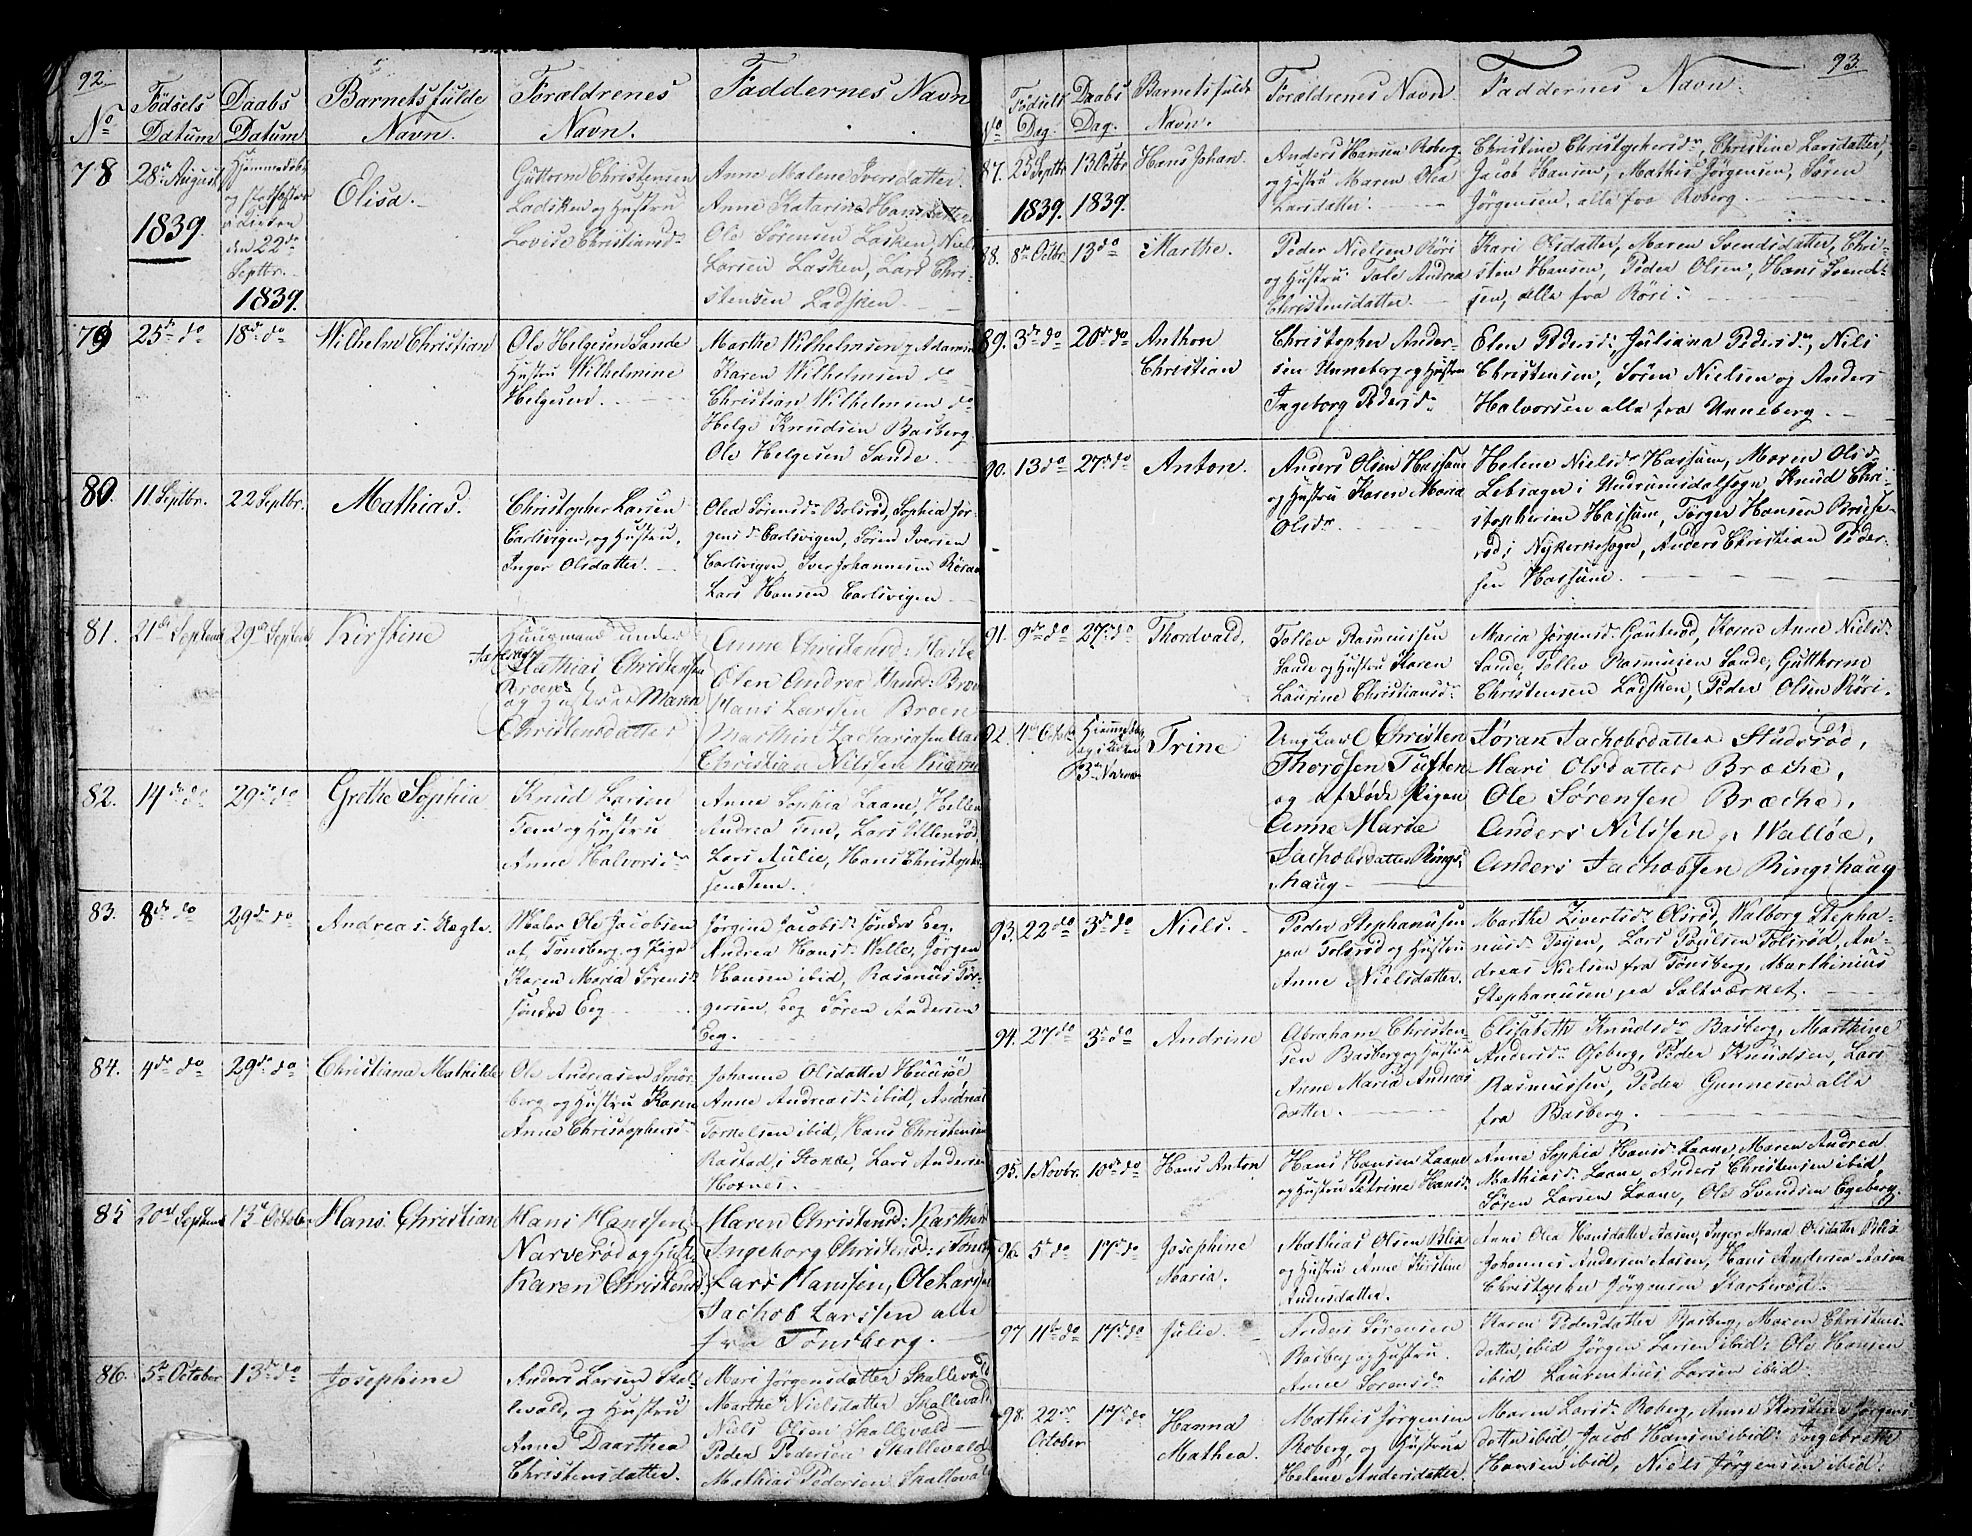 92
No
Fødsels Datum
Daabs Datum
Barnets fulde Navn.
Forældrenes Navn.
Faddernes Navn
78
28de August
1839
Hjemmedøbt
og
den 22de
Septbr.
1839.
Elisa.
Guttorm Christensen
Ladsken og Hustru
Lovise Christiansd.
Anne Malene Iversdatter
Anne Katarine Hansdatter
Ole Sørensen Lasken, Niels
Larsen Lasken, Lars Chri-
stensen Ladsken
79
25de do
18de do
Wilhelm Christian
Ole Helgesen Sande
Hustru Wilhelmine
Helgesend.
Marthe Wilhelmsen
Karen Wilhelmsen do
Christian Wilhelmsen do
Helge Knudsen Basberg
Ole Helgesen Sande
80.
11 Septbr.
22 Septbr.
Mathias.
Christopher Larsen
Carlsvigen, og Hustru,
Inger Olsdatter.
Olea Sørensdr Bolsrød, Sophia Jør-
gensdr Carlsvigen, Søren Iversen
Carlsvigen, Iver Johannesen
Lars Hansen Carlsvigen
81.
21de Septemb
29de Septem
Kirstine
Huusmand under
Mathias Christensen
Broen
og Hustrue Maren
Christensdatter
Anne Christensd:
Oten Andrea Knud: Broen
Hans Larssen Broen
Marthin Zachariasen
Christian Nilssen
82.
14de do
29de do
Grethe Sophia
Knud Larsen
Tem og Hustru
Anne Halvorsdr
Anne Sophia Laane, Hellene
Andrea Tem, Lars Ollenrød
Lars Aulie, Hans Christopher-
sen Tem.
83.
8de do
29de do
Andreas
Ole Jacobsen
af Tønsberg og Pige
Karen Maria Sørensd
søndre Eeg
Jørgine Jacobsdr søndre Eeg,
Andrea Hansd Welle, Jørgen
Hansen ibid, Rasmus Tor-
gersen Eeg Søren Andersen
Eeg.
84.
4de do
29de do
Christiana Mathilde
Ole Andreasen Smør-
berg og Hustru Karen
Anne Christophersd
Johanne Olsdatter Huusøe
Anne Andreasdr ibid, Andreas
Torkelsen ibid, Hans Christensen
Rastad i Stokke, Lars Andersen
Hoxnes.
85
20de Septemb
13de October
Hans Christian
Hans Hanssen
Narverød og Hust:
Karen Christensd:
Maren Christensd:
Ingeborg Christensd: i Tønsb
Lars Hanssen, Ole Larssen
Jachob Larssen alle
fra Tønsberg.
86.
5te October
13de do
Josephine
Anders Larsen Skal-
levald, og Hustru
Anne Daarthea
Christensdatter.
Mari Jørgensdatter Skallevald
Marthe Nielsdatter Skallevald
Niels Olsen Skallevald
Peder Pedersen Skallevald
Mathias Pedersen Skallevald
93.
No
Fødsels Dag.
Daabs Dag.
Barnets fulde Navn.
Forældrenes Navn
Faddernes Navn.
87.
25 Septbr
1839.
13 Octbr
1839.
Hans Johan.
Anders Hansen Roberg.
og Hustru Maren Olea
Larsdatter.
Christine Christophersdr, Christine Larsdatter,
Jacob Hansen, Mathis Jørgensen, Søren
Jørgensen, alle fra Roberg.
88.
8de Octbr.
13 do
Marthe.
Peder Nielsen Røri
og Hustru Tale Andrea
Christensdatter.
Kari Olsdatter, Maren Svendsdatter, Chri-
sten Hansen, Peder Olsen, Hans Svend-
sen, alle fra Røri.
89.
3de do
20de do
Anthon
Christian
Christopher Ander-
sen Unneberg og Hustru
Ingeborg Pedersdr
Elen Pedersdr, Juliana Pedersdr, Niels
Christensen, Søren Nielsen og Anders
Halvorsen alle fra Unneberg.
90.
13 do
27de do
Anton.
Anders Olsen Hassum
og Hustru Karen Maria
Olsdr
Helene Nielsdr Hassum, Maren Olsdr
Lebsager i Undrumsdalsogn, Knud Chri-
stophersen Hassum, Tørger Hansen
rød i Nykirkesogn, Anders Christian Peder-
sen Hassum.
91.
9de do
27de do
Thordvald.
Tollev Rasmussen
Sande og Hustru Karen
Laurine Christiansdr
Maria Jørgensdr Gauterød, Karen Anne Nielsdr
Sande, Tollev Rasmusen Sande, Gutthorm
Christensen Ladsken, Peder Olsen Røri.
92.
4de Octob
3de
Trine
Ungkarl Christen
Thorsen Toften
og afdøde Pigen
Anne Marie
Jachobsdatter Rings-
haug
Søran Jachobsdatter Studsrød,
Mari Olsdatter Bræche,
Ole Sørensen Bræche,
Anders Nilssen Walløe,
Anders Jachobsen Ringshaug
93.
22 do
3de do
Niels.
Peder Stephanusen
paa Tolsrød og Hustru
Anne Nielsdatter.
Marthe Zivertsdr Olsrød, Walborg Stepha-
nusdr Teyen, Lars Poulsen Tolsrød, An-
dreas Nielsen fra Tønsberg, Marthinius
Stephanusen paa Saltværket.
94.
27 do
3de do
Andrine
Abraham Christen-
sen Basberg og Hustru
Anne Maria Andreas
datter.
Elisabeth Knudsdr Basberg, Marthine
Andersdr Oseberg, Peder Knudsen, Lars
Rasmussen, Peder Gunnesen alle
fra Basberg.
95.
1 Novbr.
10de do
Hans Anton
Hans Hansen Laane
og Hustru Petrine Hansdr
Anne Sophia Hansdr Laane, Maren Andrea
Mathiasdr Laane, Anders Christensen ibid,
Søren Larsen Laane, Ole Svendsen Egeberg.
96.
5te do
17de do
Josephine
Maria.
Mathias Olsen Blix
og Hustru Anne Kirstine
Andersdatter.
Anne Olea Hansdatter Aasen, Inger Maria Olsdatter
Johannes Andersen Aasen, Hans Andersen Aasen
Christopher Jørgensen
97
11te do
17de do
Julie.
Anders Sørensen
Basberg og Hustru
Anne Sørensdr
Karen Pedersdatter Basberg, Maren Christens-
datter ibid Jørgen Larsen ibid: Ole Hansen
ibid Laurentius Larsen ibid.
98.
22de
October
17de do
Hanna
Mathea.
Mathis Jørgensen
Roberg, og Hustrue
Helene Andersdatter.
Maren Larsdr Roberg, Anne Kirstine Jørgens-
datter ibid, Jacob Hansen ibid: Ingebreth
Hansen ibid, Niels Jørgensen ibid.